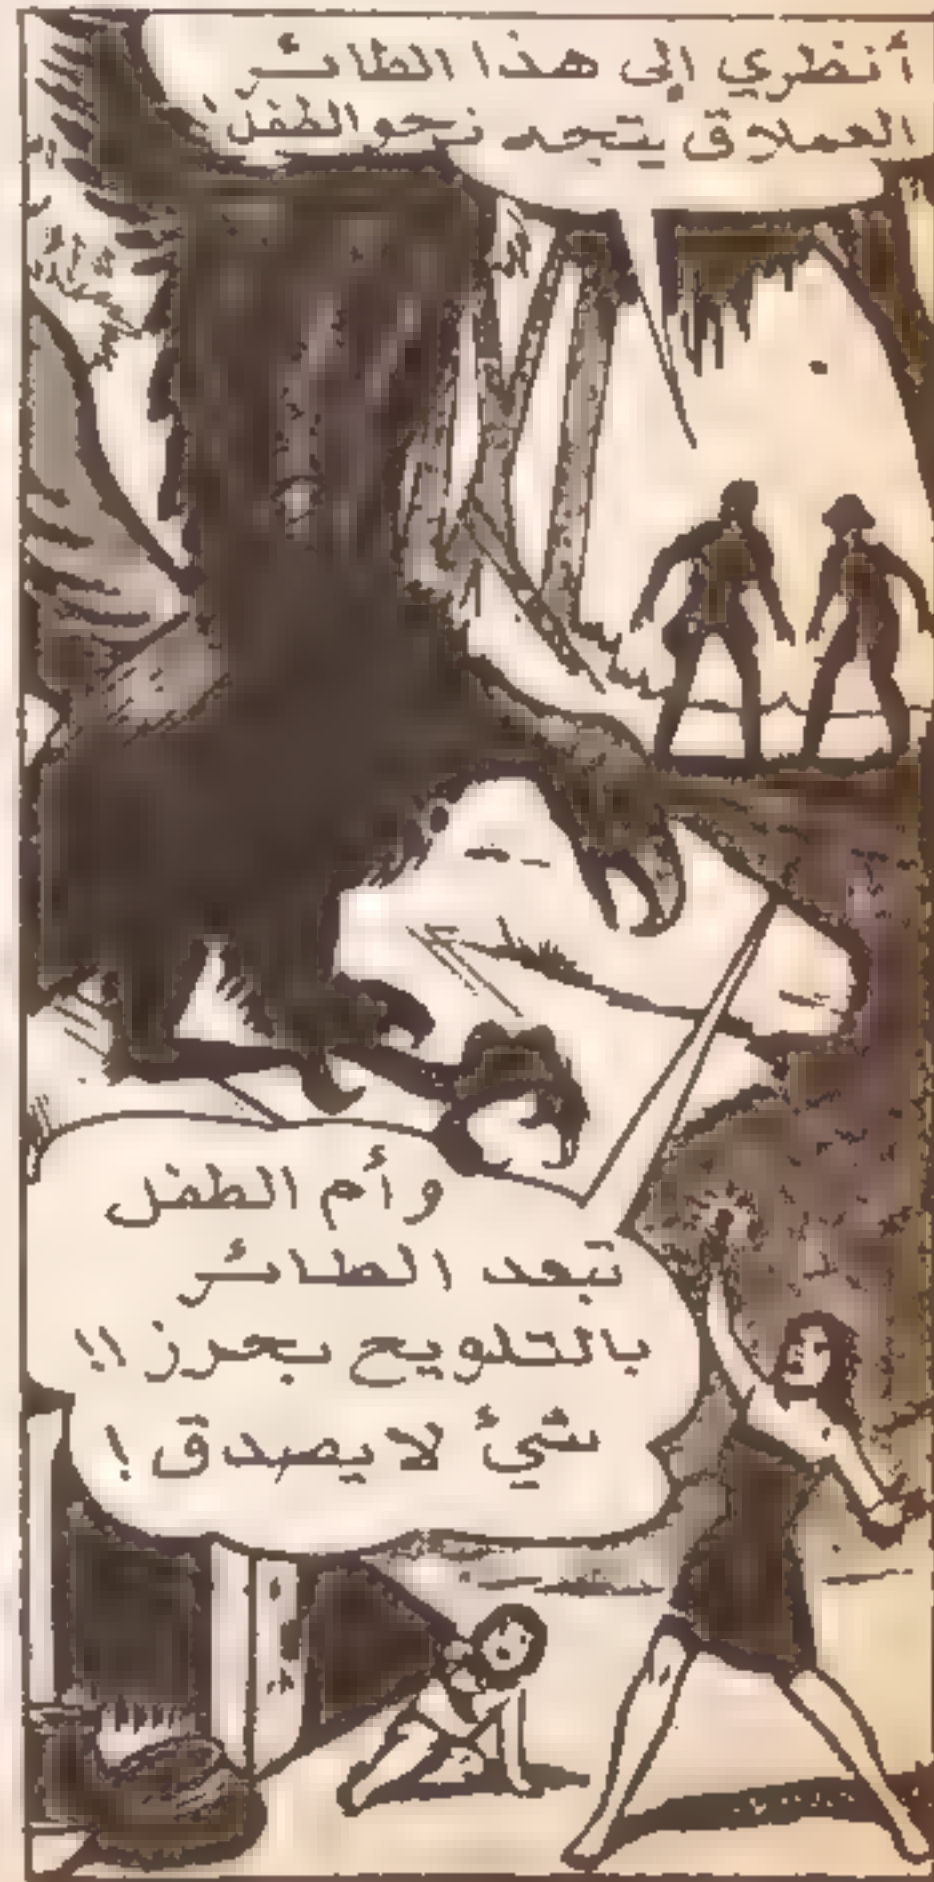 أنظري إلى هذا الطائر
العملاق يتجه نحو الطفل!
وأم الطفل
تبعد الطائر
بالتلويح بحرز!!
شيئ لا يصدق!